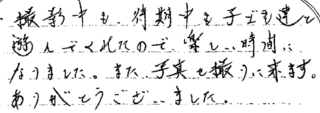 撮影中も、待期中も子ども達と
遊んでくれたので楽しい時間に
なりました。また写真も撮りに来ます。
ありがとうございました。